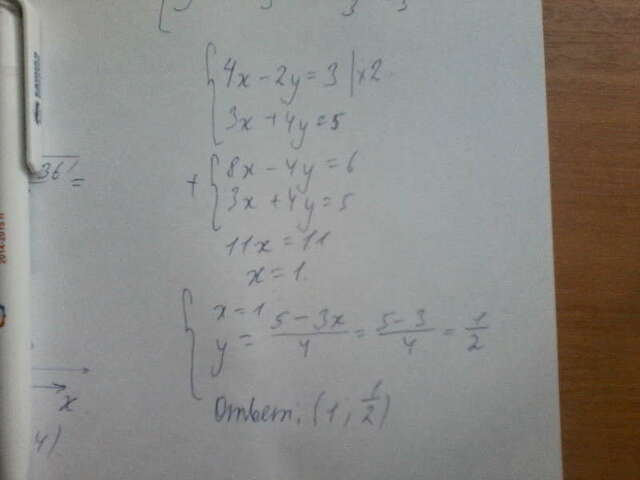 3 3
4x - 2y = 3 | ×2
3x + 4y = 5
+ 8x - 4y = 6
3x + 4y = 5
11x = 11
x = 1.
x = 1
y = (5 - 3x)/4 = (5 - 3)/4 = 1/2
Ответ: (1; 1/2)
36 =
x
4)